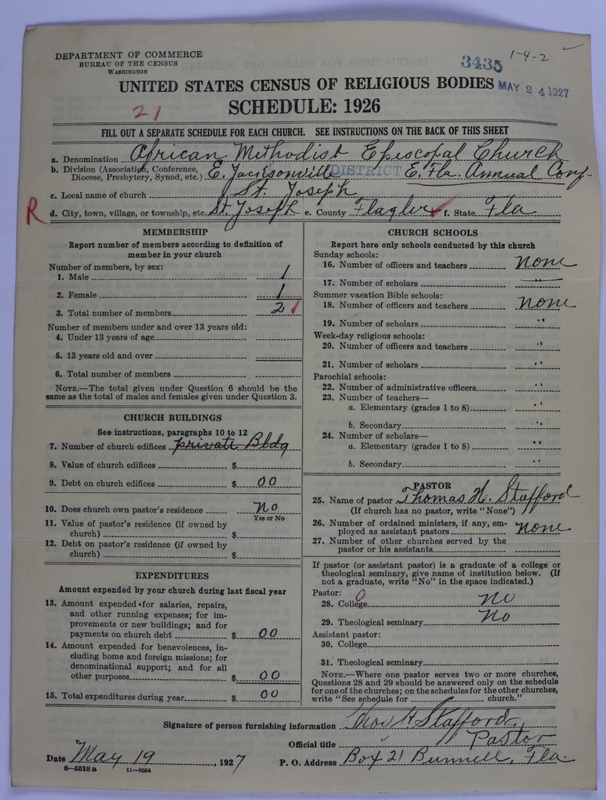 DEPARTMENT OF COMMERCE
BUREAU OF THE CENSUS
WASHINGTON
3435
1-4-2
UNITED STATES CENSUS OF RELIGIOUS BODIES
MAY 24 1927
21
SCHEDULE: 1926
FILL OUT A SEPARATE SCHEDULE FOR EACH CHURCH. SEE INSTRUCTIONS ON THE BACK OF THIS SHEET
a. Denomination African Methodist Episcopal Church
b. Division (Association, Conference, Diocese, Presbytery, Synod, etc.) E. Jacksonville DISTRICT E. Fla. Annual Conf
c. Local name of church St. Joseph
R d. City, town, village, or township, etc. St. Joseph e. County Flagler f. State Fla
MEMBERSHIP
Report number of members according to definition of
member in your church
Number of members, by sex:
1. Male 1
2. Female 1
3. Total number of members 2
Number of members under and over 13 years old:
4. Under 13 years of age
5. 13 years old and over
6. Total number of members
NOTE.—The total given under Question 6 should be the
same as the total of males and females given under Question 3.
CHURCH BUILDINGS
See instructions, paragraphs 10 to 12
7. Number of church edifices private Bldg
8. Value of church edifices $
9. Debt on church edifices $ 00
10. Does church own pastor's residence? No
Yes or No
11. Value of pastor's residence (if owned by
church) $
12. Debt on pastor's residence (if owned by
church) $
EXPENDITURES
Amount expended by your church during last fiscal year
13. Amount expended for salaries, repairs,
and other running expenses; for im-
provements or new buildings; and for
payments on church debt $ 00
14. Amount expended for benevolences, in-
cluding home and foreign missions; for
denominational support; and for all
other purposes $ 00
15. Total expenditures during year $ 00
CHURCH SCHOOLS
Report here only schools conducted by this church
Sunday schools:
16. Number of officers and teachers none
17. Number of scholars
Summer vacation Bible schools:
18. Number of officers and teachers none
19. Number of scholars "
Week-day religious schools:
20. Number of officers and teachers "
21. Number of scholars "
Parochial schools:
22. Number of administrative officers "
23. Number of teachers—
a. Elementary (grades 1 to 8) "
b. Secondary "
24. Number of scholars—
a. Elementary (grades 1 to 8) "
b. Secondary "
PASTOR
25. Name of pastor Thomas H. Stafford
(If church has no pastor, write "None")
26. Number of ordained ministers, if any, em-
ployed as assistant pastors none
27. Number of other churches served by the
pastor or his assistants
If pastor (or assistant pastor) is a graduate of a college or
theological seminary, give name of institution below. (If
not a graduate, write "No" in the space indicated.)
Pastor: 0
28. College No
29. Theological seminary No
Assistant pastor:
30. College
31. Theological seminary
NOTE.—Where one pastor serves two or more churches,
Questions 28 and 29 should be answered only on the schedule
for one of the churches; on the schedules for the other churches,
write "See schedule for church."
Signature of person furnishing information Thos H Stafford
Official title Pastor
Date May 19, 1927 P. O. Address Box 21 Bunnell, Fla
8—5518 a 11—9024